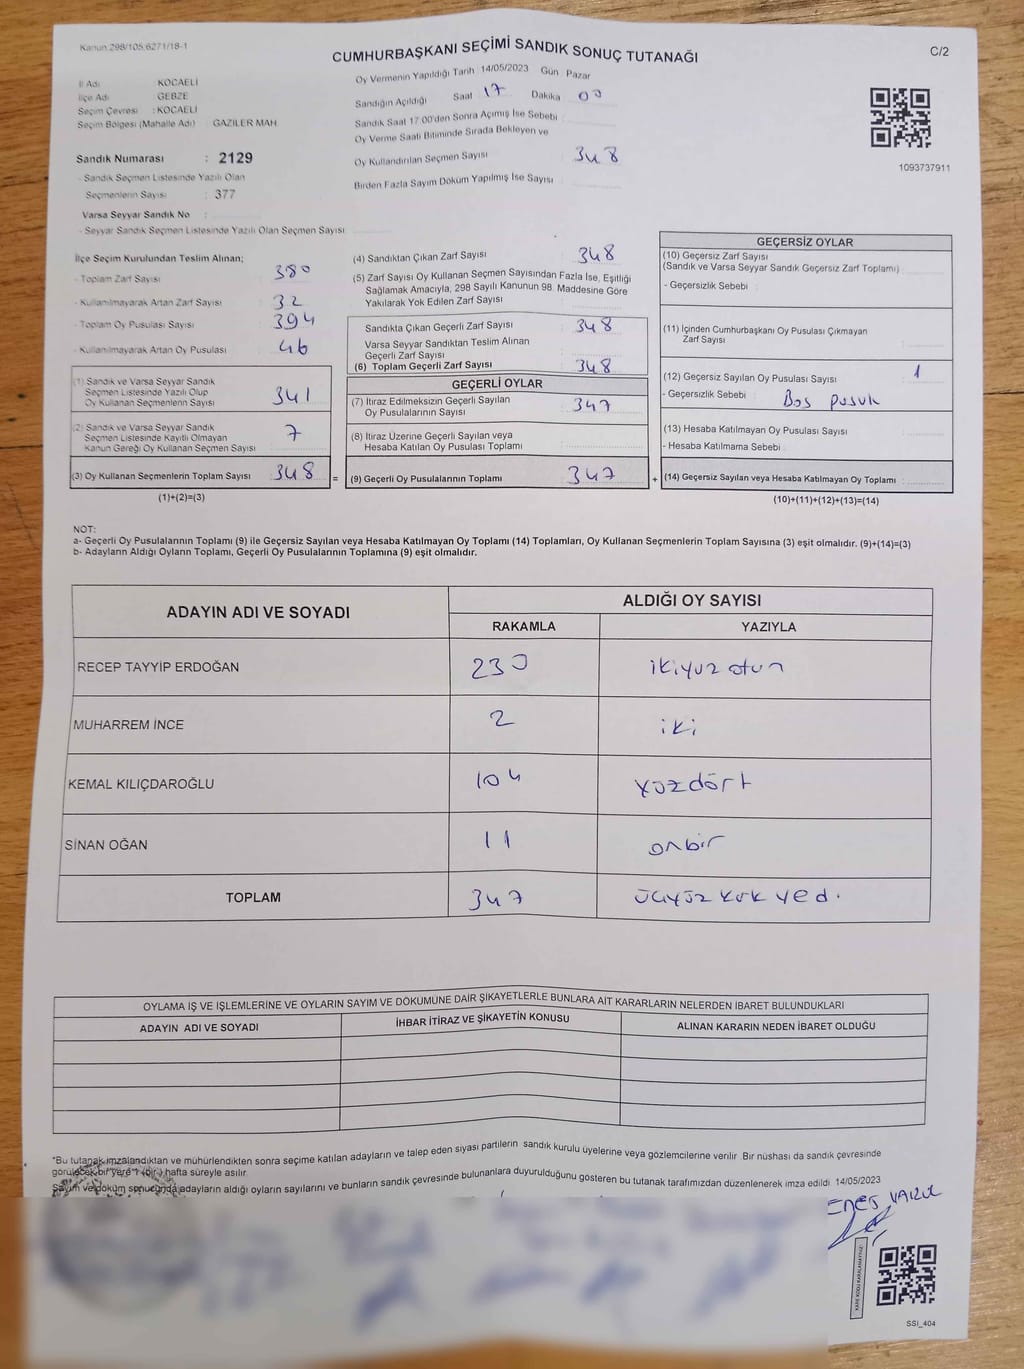 Kanun:298/105,6271/18-1
CUMHURBAŞKANI SEÇİMİ SANDIK SONUÇ TUTANAĞI
C/2
İl Adı : KOCAELİ
İlçe Adı : GEBZE
Seçim Çevresi : KOCAELİ
Seçim Bölgesi (Mahalle Adı) : GAZİLER MAH.
Sandık Numarası : 2129
- Sandık Seçmen Listesinde Yazılı Olan
Seçmenlerin Sayısı : 377
Varsa Seyyar Sandık No :
- Seyyar Sandık Seçmen Listesinde Yazılı Olan Seçmen Sayısı:
Oy Vermenin Yapıldığı Tarih 14/05/2023 Gün Pazar
Sandığın Açıldığı Saat 17 Dakika 00
Sandık Saat 17:00'den Sonra Açımış İse Sebebi
Oy Verme Saati Bitiminde Sırada Bekleyen ve
Oy Kullandırılan Seçmen Sayısı 348
Birden Fazla Sayım Döküm Yapılmış İse Sayısı
1093737911
İlçe Seçim Kurulundan Teslim Alınan;
- Toplam Zarf Sayısı : 380
- Kullanılmayarak Artan Zarf Sayısı : 32
- Toplam Oy Pusulası Sayısı : 394
- Kullanılmayarak Artan Oy Pusulası : 46
(1) Sandık ve Varsa Seyyar Sandık
Seçmen Listesinde Yazılı Olup
Oy Kullanan Seçmenlerin Sayısı : 341
(2) Sandık ve Varsa Seyyar Sandık
Seçmen Listesinde Kayıtlı Olmayan
Kanun Gereği Oy Kullanan Seçmen Sayısı : 7
(3) Oy Kullanan Seçmenlerin Toplam Sayısı : 348 =
(1)+(2)=(3)
(4) Sandıktan Çıkan Zarf Sayısı : 348
(5) Zarf Sayısı Oy Kullanan Seçmen Sayısından Fazla İse, Eşitliği
Sağlamak Amacıyla, 298 Sayılı Kanunun 98. Maddesine Göre
Yakılarak Yok Edilen Zarf Sayısı :
Sandıkta Çıkan Geçerli Zarf Sayısı : 348
Varsa Seyyar Sandıktan Teslim Alınan
Geçerli Zarf Sayısı :
(6) Toplam Geçerli Zarf Sayısı : 348
GEÇERLİ OYLAR
(7) İtiraz Edilmeksizin Geçerli Sayılan
Oy Pusulalarının Sayısı : 347
(8) İtiraz Üzerine Geçerli Sayılan veya
Hesaba Katılan Oy Pusulası Toplamı :
(9) Geçerli Oy Pusulalarının Toplamı : 347 +
GEÇERSİZ OYLAR
(10) Geçersiz Zarf Sayısı
(Sandık ve Varsa Seyyar Sandık Geçersiz Zarf Toplamı) :
- Geçersizlik Sebebi :
(11) İçinden Cumhurbaşkanı Oy Pusulası Çıkmayan
Zarf Sayısı :
(12) Geçersiz Sayılan Oy Pusulası Sayısı : 1
- Geçersizlik Sebebi : Boş pusuk
(13) Hesaba Katılmayan Oy Pusulası Sayısı :
- Hesaba Katılmama Sebebi :
(14) Geçersiz Sayılan veya Hesaba Katılmayan Oy Toplamı :
(10)+(11)+(12)+(13)=(14)
NOT:
a- Geçerli Oy Pusulalarının Toplamı (9) ile Geçersiz Sayılan veya Hesaba Katılmayan Oy Toplamı (14) Toplamları, Oy Kullanan Seçmenlerin Toplam Sayısına (3) eşit olmalıdır. (9)+(14)=(3)
b- Adayların Aldığı Oyların Toplamı, Geçerli Oy Pusulalarının Toplamına (9) eşit olmalıdır.
ADAYIN ADI VE SOYADI ALDIĞI OY SAYISI
RAKAMLA YAZIYLA
RECEP TAYYİP ERDOĞAN 230 ikiyuz otun
MUHARREM İNCE 2 iki
KEMAL KILIÇDAROĞLU 104 yüzdört
SİNAN OĞAN 11 onbir
TOPLAM 347 üçyüz kırk yed.
OYLAMA İŞ VE İŞLEMLERİNE VE OYLARIN SAYIM VE DÖKÜMÜNE DAİR ŞİKAYETLERLE BUNLARA AİT KARARLARIN NELERDEN İBARET BULUNDUKLARI
ADAYIN ADI VE SOYADI İHBAR İTİRAZ VE ŞİKAYETİN KONUSU ALINAN KARARIN NEDEN İBARET OLDUĞU
*Bu tutanak imzalandıktan ve mühürlendikten sonra seçime katılan adayların ve talep eden siyasi partilerin sandık kurulu üyelerine veya gözlemcilerine verilir. Bir nüshası da sandık çevresinde
görülecek bir yere 1 (bir) hafta süreyle asılır.
Sayım ve döküm sonucunda adayların aldığı oyların sayılarını ve bunların sandık çevresinde bulunanlara duyurulduğunu gösteren bu tutanak tarafımızdan düzenlenerek imza edildi 14/05/2023
KARE KODU KARALAMAYINIZ
SSI_404